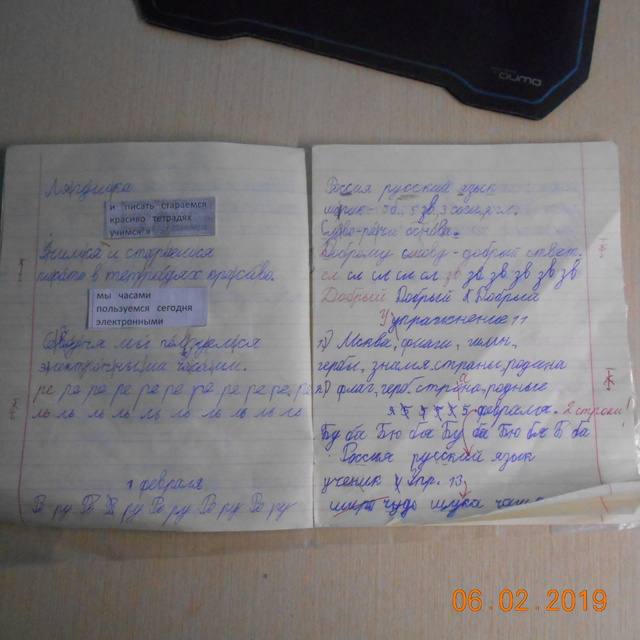 Лягушка
и писать стараемся
красиво тетрадях
учимся в
Учимся и стараемся
писать в тетрадях красиво.
мы часами
пользуемся сегодня
электронными
Сегодня мы пользуемся
электронными часами.
ре ре ре ре ре ре ре ре ре ре ре
ль ль ль ль ль ль ль ль ль ль ль
1 февраля
Ве ру
Россия русский язык
Слово-речи основа.
Доброму слову - добрый ответ.
сл сл сл сл сл зв зв зв зв зв зв
Добрый Добрый
Упражнение 11
1) Москва, флаги, гимн,
гербы, знамя, страны, родина
2) флаг, герб, страна, родные
5 февраля. 2 строки!
Бу ба Бю бы Бу ба Бю бы Б ба
Россия русский язык
ученик упр. 13
чудо щука
QUMO
06.02.2019